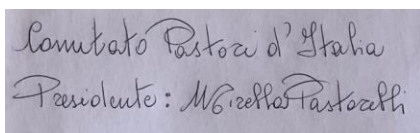 Comitato Pastori d'Italia
Presidente: Mirella Pastorelli